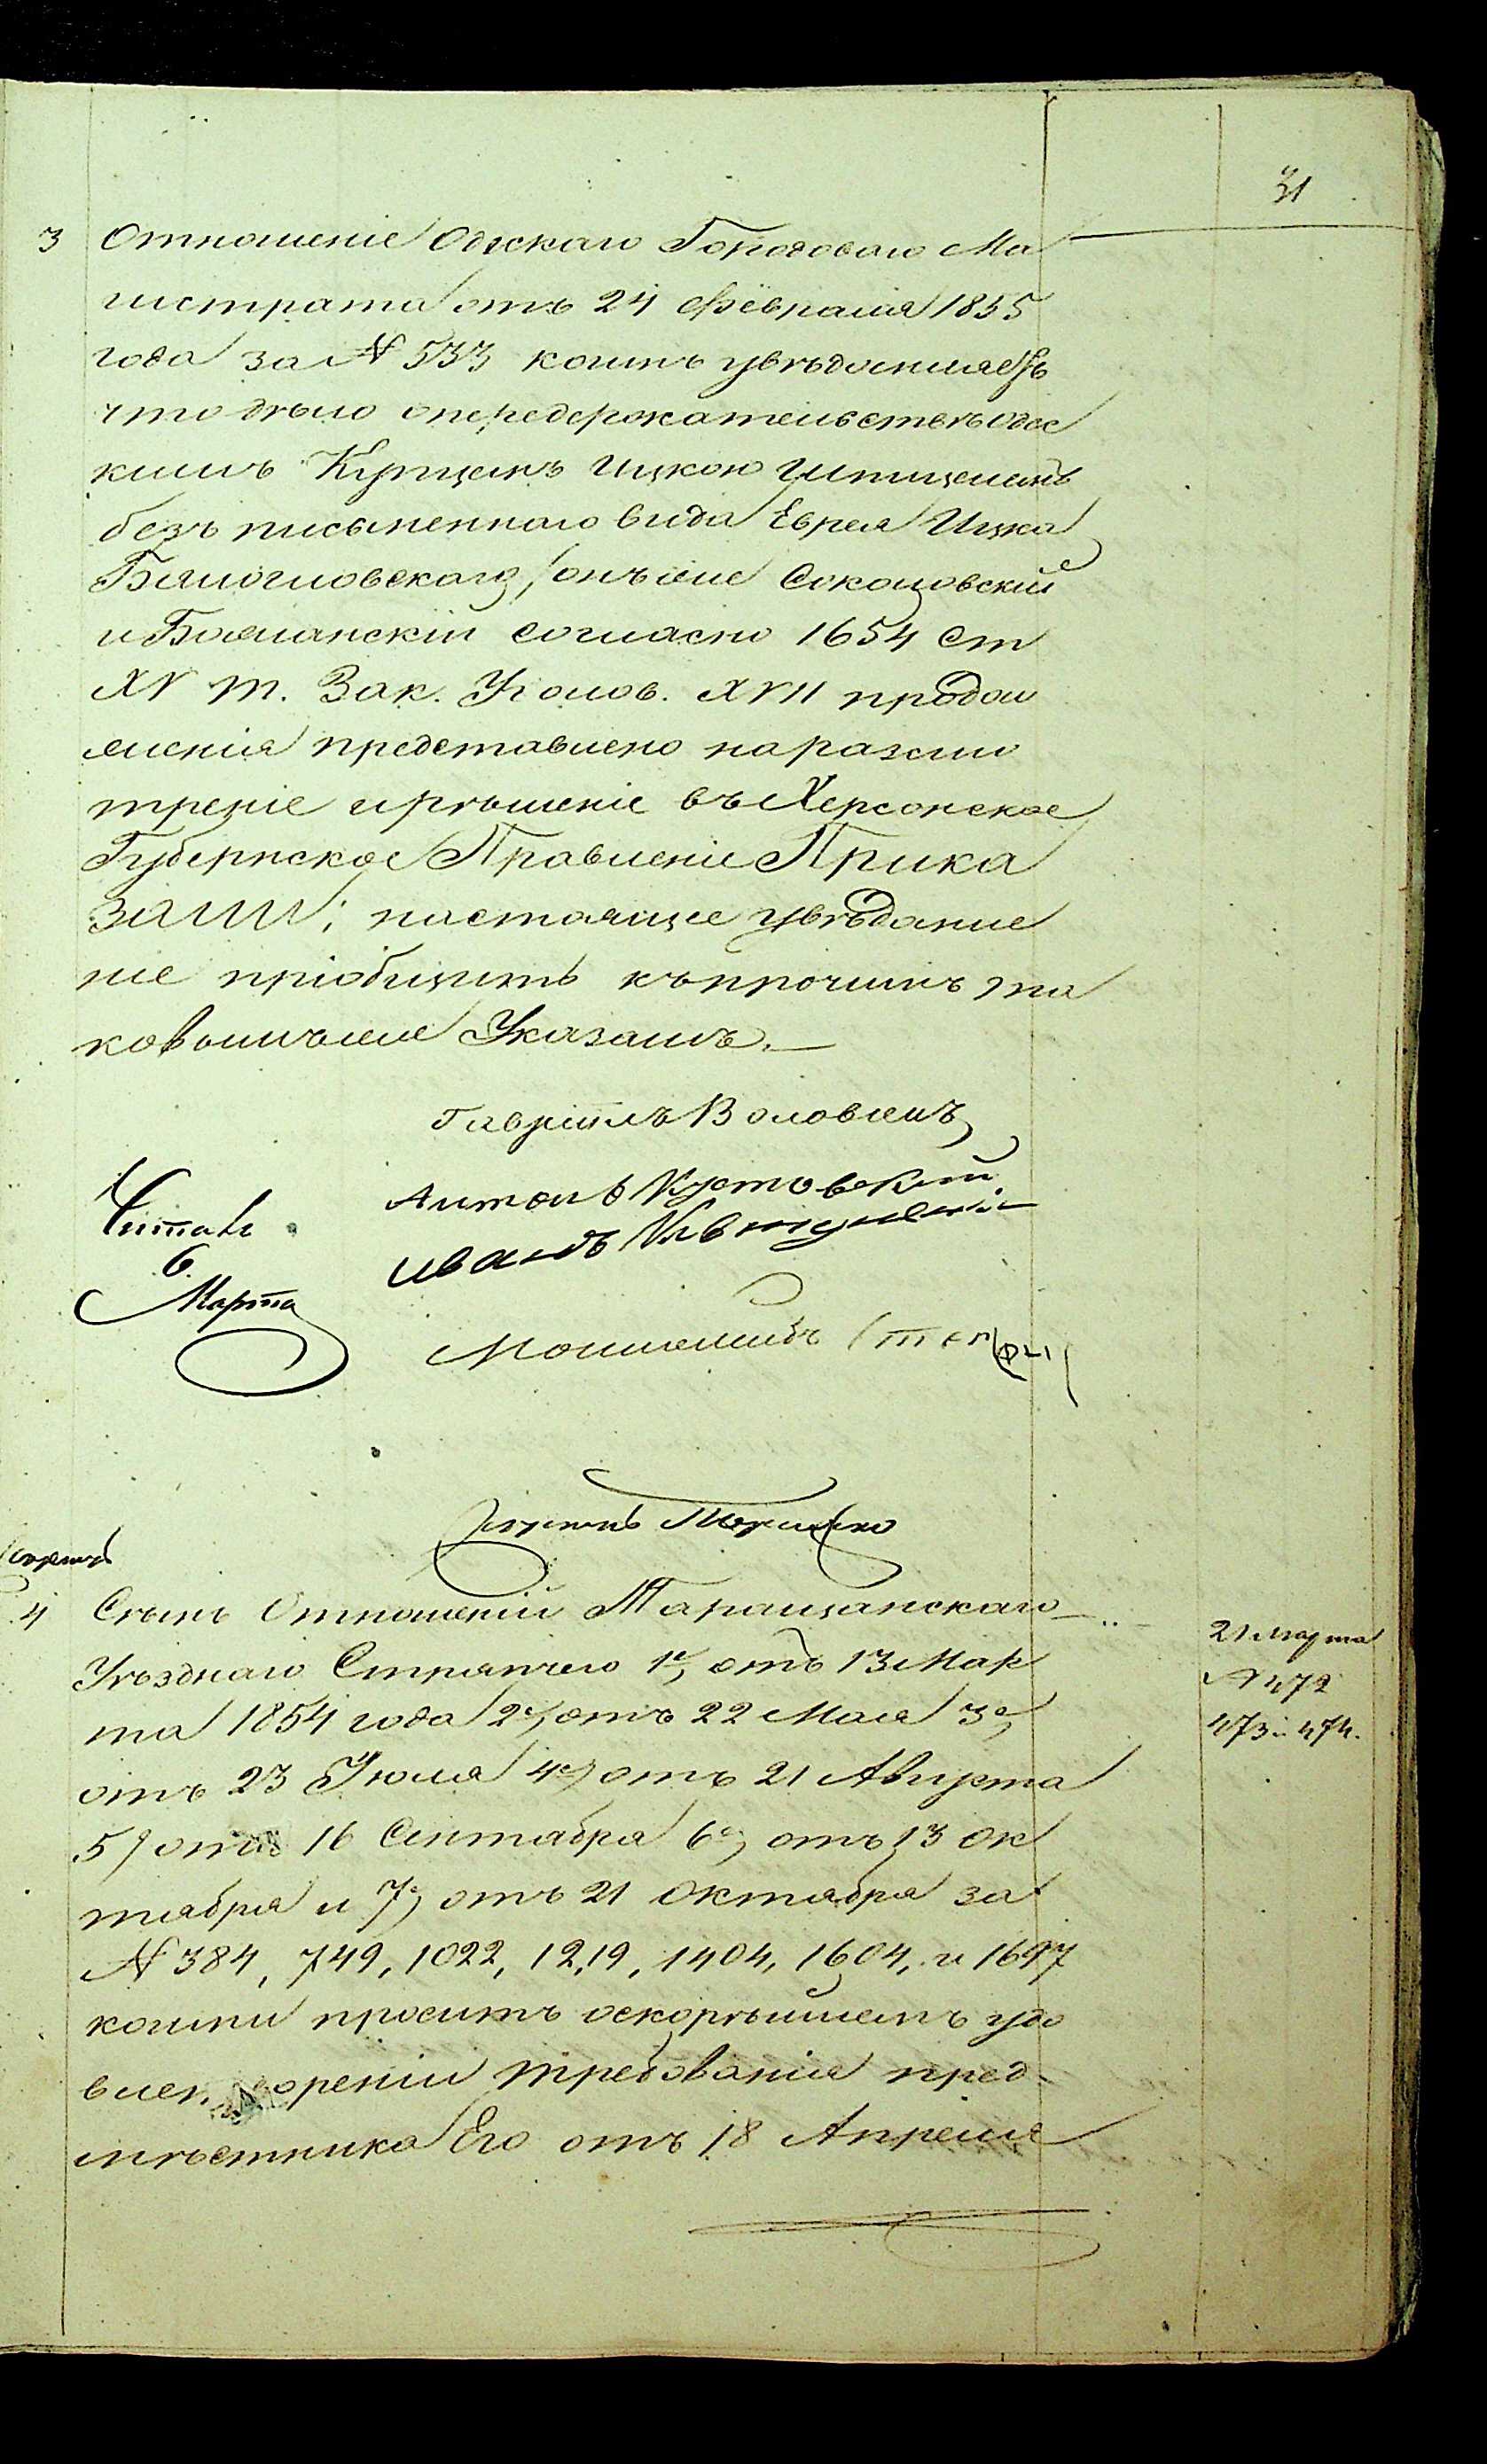 31
3 Отношеніе Одескаго Городоваго Ма
гистрата отъ 24 февраля 1855
года за N 533 коимъ увѣдомляетъ
что дѣло опередержательствѣ Одес
кимъ Купцемъ Ицкою Шпицемъ
безъ писменнаго вида Еврея Ицка
Бялогловскаго, онъ же Соколовскій
и Балманскій согласно 1654 ст
XV т. Зак. Уголов. XVII продол
женія представлено наразсмо
трѣніе ирѣшеніе въ Херсонское
Губернское Правленіе Прика
зали: настоящее увѣдомле
ніе пріобщить къпрочимъ та
ковымъже Указамъ.
Гавріилъ Воловикъ
Антонъ Кутовскій
Иванъ
Читалъ
6
Марта
4 Семь Отношеній Таращанскаго
Уѣзднаго Стряпчего 1е, отъ 13 Мар
та 1854 года 2е, отъ 22 Мая 3е,
отъ 23 Іюля 4е, отъ 21 Августа
5, отъ 16 Сентября 6е, отъ 13 Ок
тября и 7е, отъ 21 Октября за
N 384, 749, 1022, 1219, 1404, 1604, и 1697
коими проситъ оскорѣйшемъ удо
влетвореніи требованія пред
мѣстника Его отъ 18 Апреля
21 Марта
N 472
473 и 474.